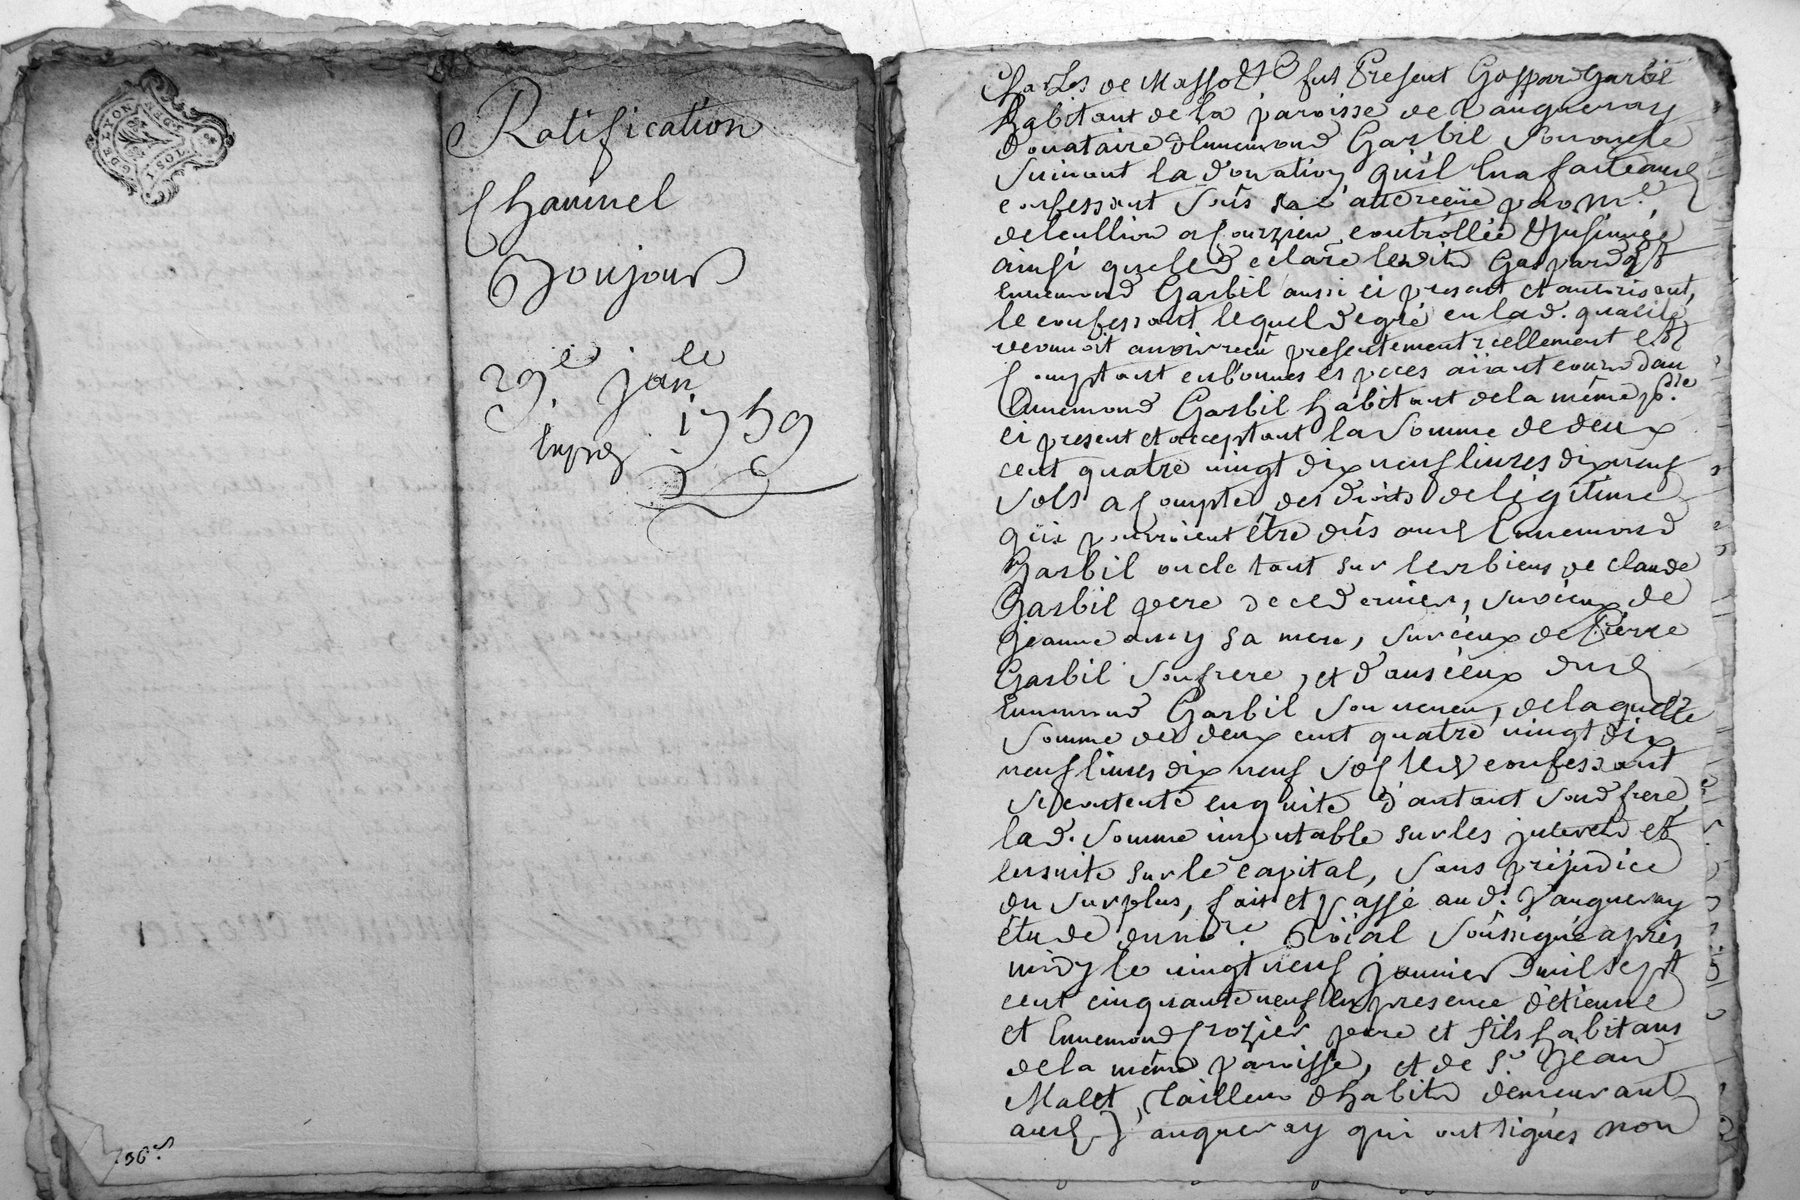 GDE LYON
1 SOL
Ratification
Chaminel
Bonjour
29e janle
1759
Expez
736rs
Charles de Masso &c fut present Gaspard Garbil
habitant de la paroisse de Vaugneray
donataire dEnnemond Garbil son oncle
suivant la donation qu'il luy a faite aud
confessant sous sa datte recüe par Me.
delcullion a fourzieu controllée & insinuée
ainsi que led eclare ledit Gaspard &
Ennemond Garbil aussi ci present et autorisant,
le confessant lequel de gré en lad. qualité
reconnoit avoir reçu presentement réellement et
comptant en bonnes especes aiant cours dun
Ennemond Garbil habitant de la même psse
ci present et acceptant la somme de deux
cent quatre vingt dix neuf livres dix neuf
sols a compter des droits de legitime
qui pourroient être dus aud Ennemond
Garbil oncle tant sur les biens de claude
Garbil pere de ce dernier, sur ceux de
jeanne amy sa mere, sur ceux de Pierre
Garbil son frere, et dans ceux dud
Ennemond Garbil son neveu, de laquelle
somme de deux cent quatre vingt dix
neuf livres dix neuf sols led confessant
se contente en quitte d'autant sond frere,
lad. somme imputable sur les interets et
ensuite sur le capital, sans prejudice
du surplus, fait et passé aud. Vaugneray
étude du nore. Roial soussigné après
midy le vingt neuf janvier mil sept
cent cinquante neuf en presence d'étienne
et Ennemond frozier pere et fils habitans
de la même paroisse, et de Sr. Jean
Malet, tailleur dhabits demeurant
aud Vaugneray qui ont signés non